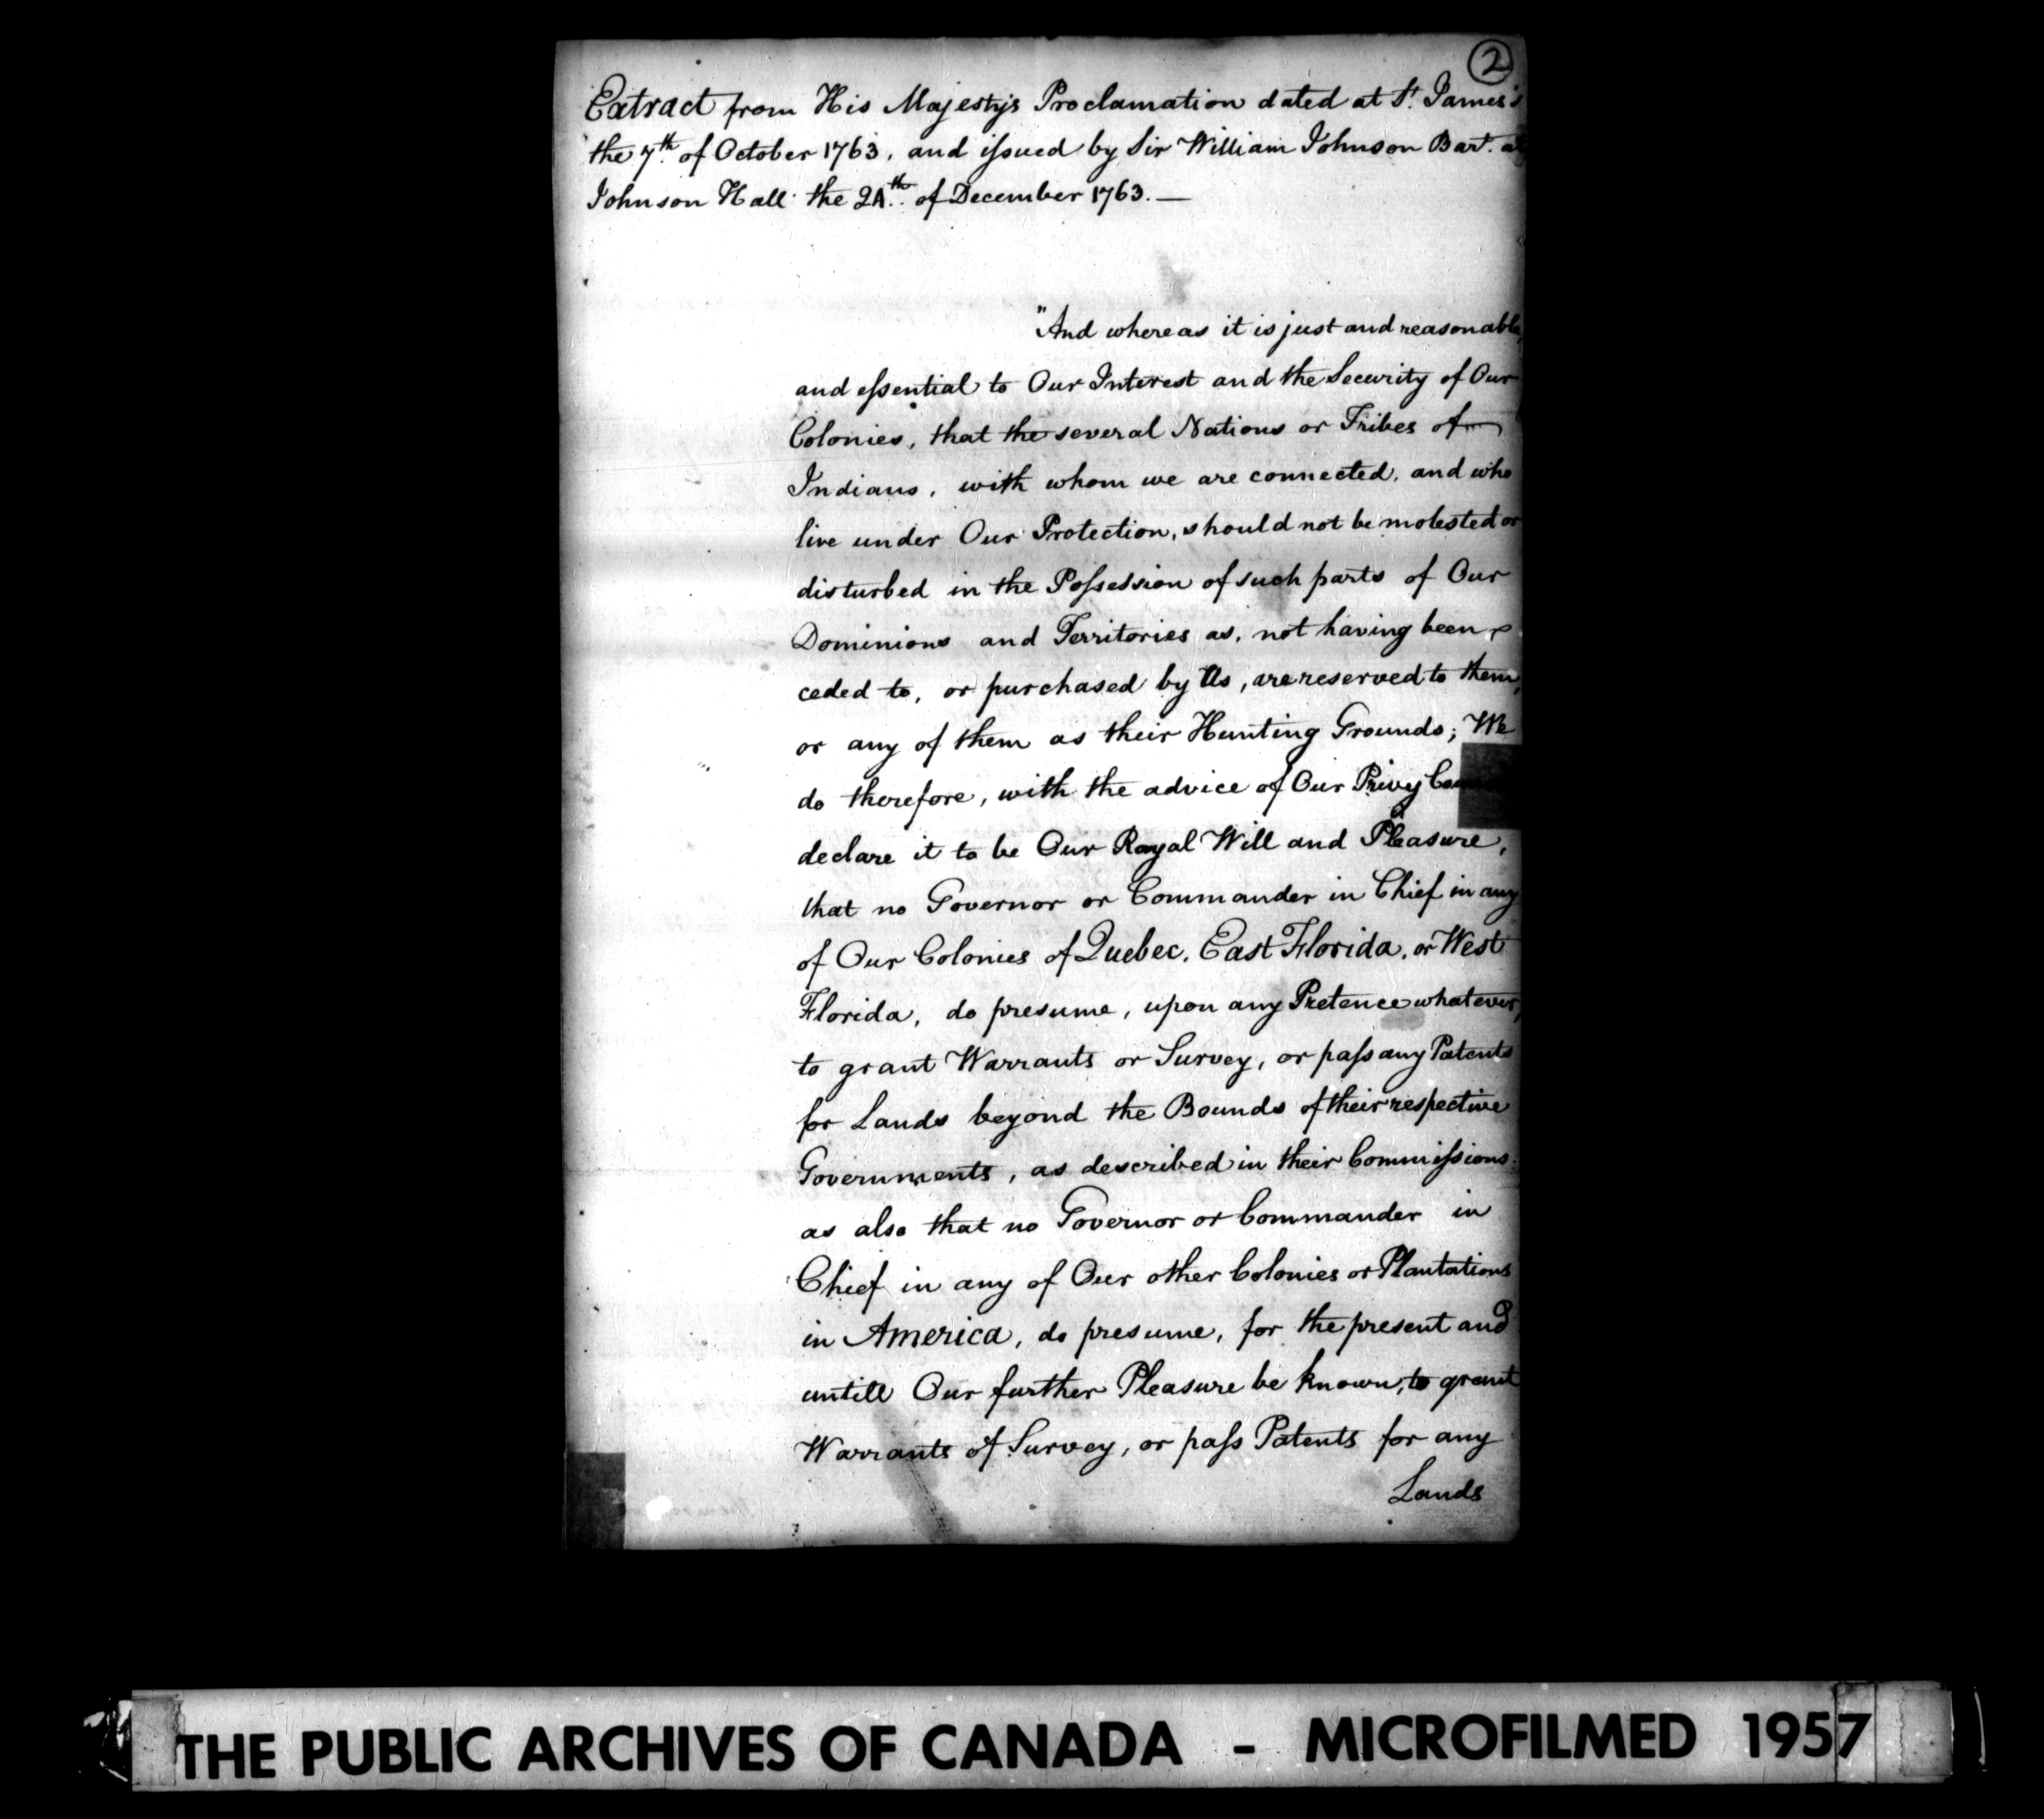 2
Extract from His Majestys Proclamation dated at St. James's
the 7th. of October 1763, and issued by Sir William Johnson Bart. at
Johnson Hall the 24th. of December 1763. —
"And whereas it is just and reasonable,
and essential to Our Interest and the Security of Our
Colonies, that the several Nations or Tribes of
Indians, with whom we are connected, and who
live under Our Protection, should not be molested or
disturbed in the Possession of such parts of Our
Dominions and Territories as, not having been
ceded to, or purchased by Us, are reserved to them,
or any of them as their Hunting Grounds; We
do therefore, with the advice of Our Privy Cou
declare it to be Our Royal Will and Pleasure,
that no Governor or Commander in Chief in any
of Our Colonies of Quebec, East Florida, or West
Florida, do presume, upon any Pretence whatever,
to grant Warrants or Survey, or pass any Patents
for Lands beyond the Bounds of their respective
Governments, as described in their Commissions:
as also that no Governor or Commander in
Chief in any of Our other Colonies or Plantations
in America, do presume, for the present and
untill Our further Pleasure be known, to grant
Warrants of Survey, or pass Patents for any
Lands
THE PUBLIC ARCHIVES OF CANADA - MICROFILMED 1957